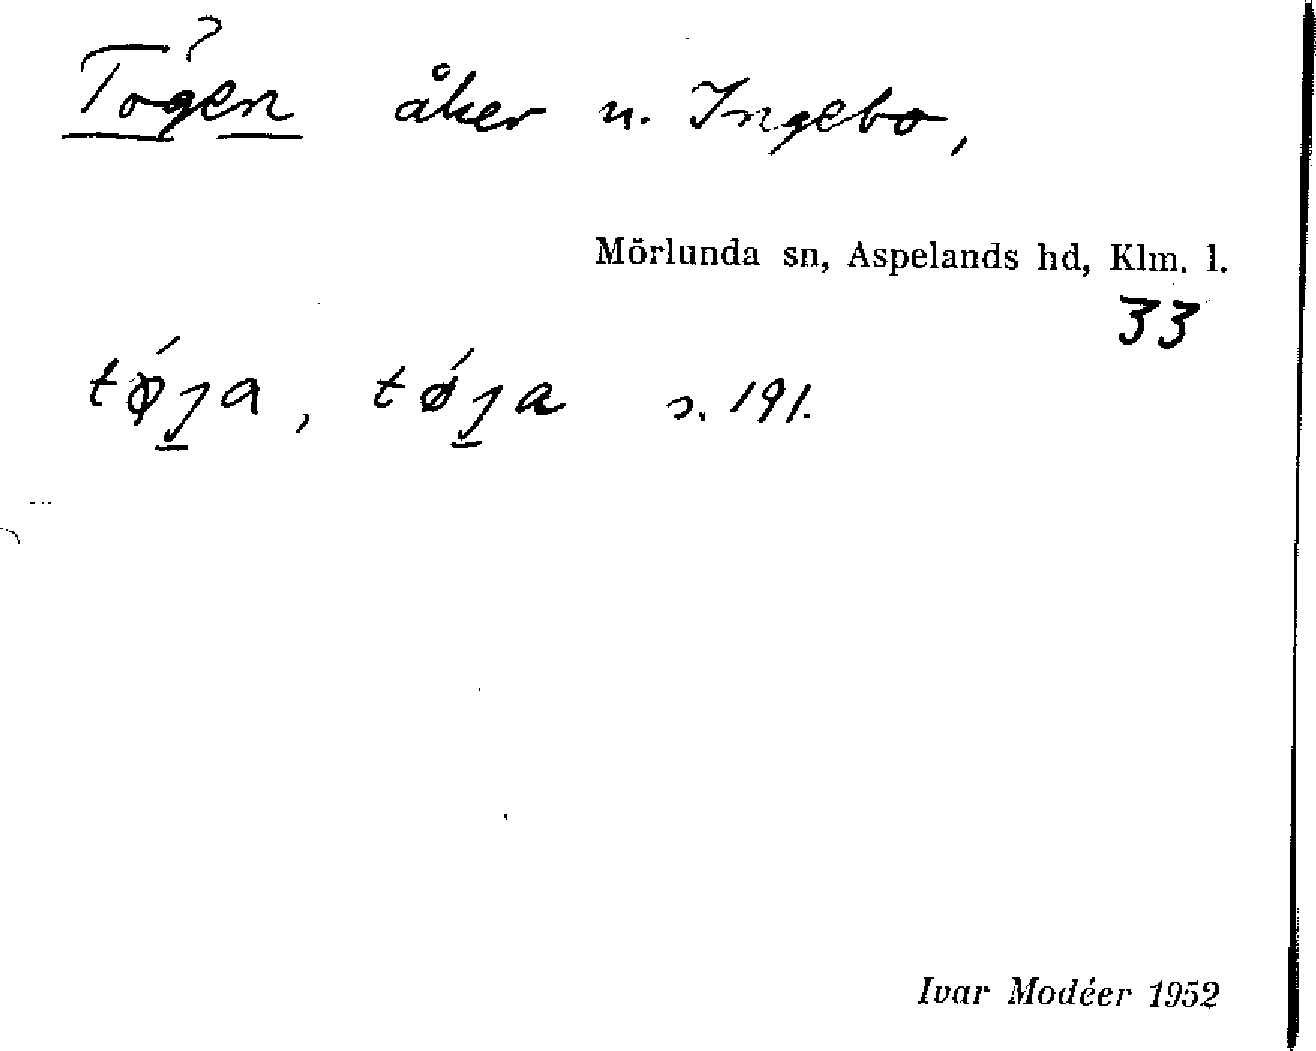 Togen ? åker u. Ingebo,
Mörlunda sn, Aspelands hd, Klm. l.
33
tǿja, tǿja s. 191.
Ivar Modéer 1952